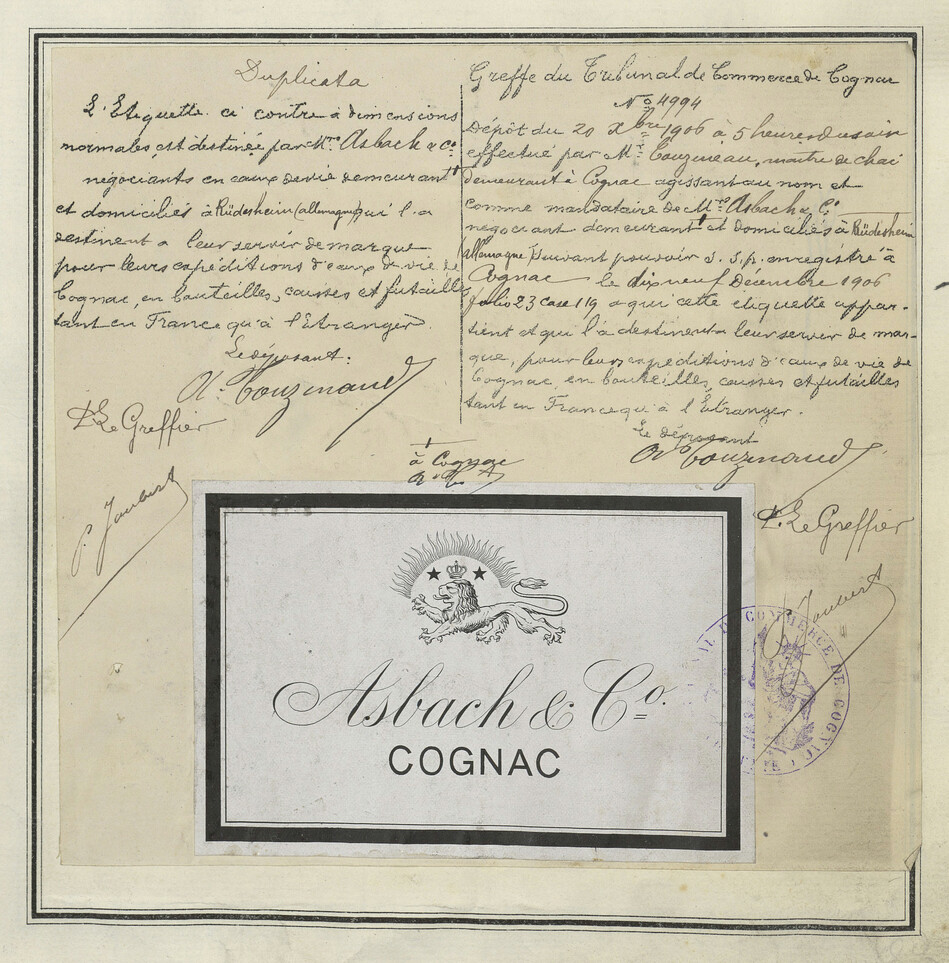 Duplicata
L'Etiquette ci contre à dimensions
normales, est destinée par Mrs Asbach & Co
négociants en eaux de vie demeurant
et domiciliés à Rüdesheim (allemagne) qui l'a
destinent a leur servir de marque
pour leurs expéditions d'eaux de vie de
Cognac, en bouteilles, caisses et futailles
tant en France qu'à l'Etranger.
Le déposant.
Le Greffier
P. Joubert
Greffe du Tribunal de Commerce de Cognac
No 4994
Dépôt du 20 Xbre 1906 à 5 heures du soir
effectué par Mr Touzineau, maître de chai
demeurant à Cognac agissant au nom et
comme mandataire de Mrs Asbach & Co
négociant demeurant et domiciliés à Rüdesheim
allemagne suivant pouvoir s. s. p. enregistré à
Cognac le dix neuf Décembre 1906
folio 23 case 119 a qui cette etiquette appar-
tient et qui l'a destinent a leur servir de mar-
que, pour leurs expéditions d'eaux de vie de
Cognac, en bouteilles, caisses et futailles
tant en France qu'à l'Etranger.
Le déposant
à Cognac
Le Greffier
Joubert
Asbach & Co.
COGNAC
COMMERCE DE COGNAC